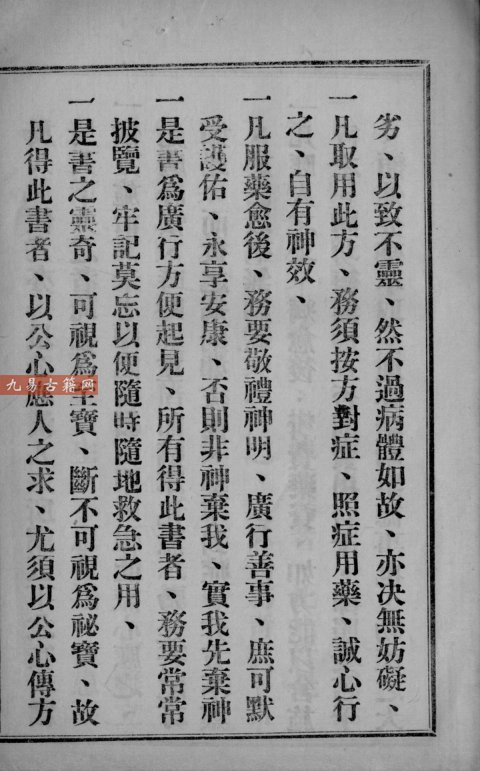 劣、以致不靈、然不過病體如故、亦決無妨礙、
一凡取用此方、務須按方對症、照症用藥、誠心行
之、自有神效、
一凡服藥愈後、務要敬禮神明、廣行善事、庶可默
受護佑、永享安康、否則非神棄我、實我先棄神
一是書爲廣行方便起見、所有得此書者、務要常常
披覽、牢記莫忘以便隨時隨地救急之用、
一是書之靈奇、可視爲至寶、斷不可視爲祕寶、故
凡得此書者、以公心應人之求、尤須以公心傳方
九易古籍网